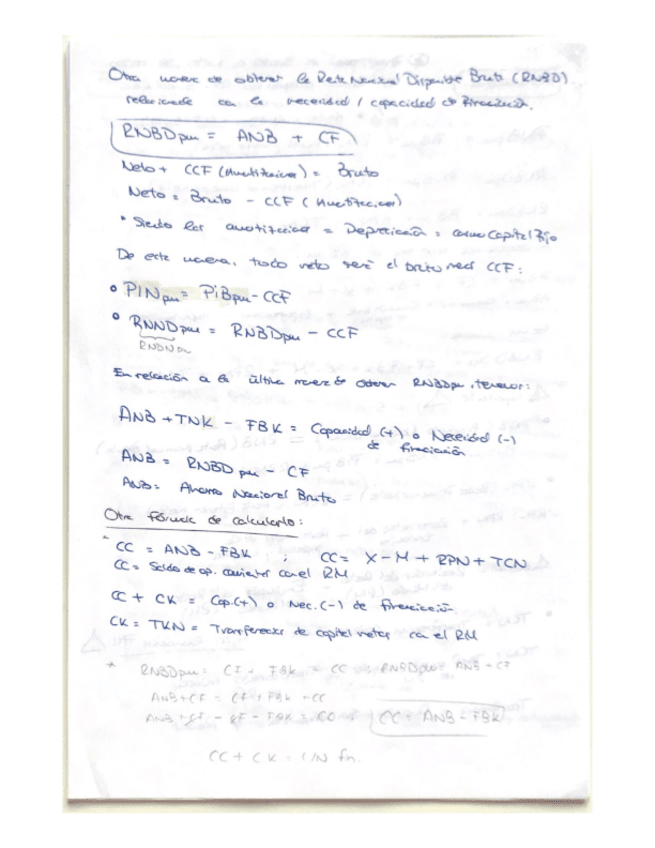 Otra manera de obtener la Renta Nacional Disponible Bruta (RNBD)
relacionada con la necesidad / capacidad de financiación.
RNBDpm = ANB + CF
Neto + CCF (Amortizaciones) = Bruto
Neto = Bruto - CCF (Amortizaciones)
* Siendo las amortizaciones = Depreciación = consumo Capital Fijo
De esta manera, todo neto será el bruto menos CCF:
• PINpm = PIBpm - CCF
• RNNDpm = RNBDpm - CCF
RNDNpm
En relación a la última manera de obtener RNBDpm, tenemos:
ANB + TNK - FBK = Capacidad (+) o Necesidad (-)
de financiación
ANB = RNBDpm - CF
ANB = Ahorro Nacional Bruto
Otra fórmula de calcularlo:
* CC = ANB - FBK ; CC = X - M + RPN + TCN
CC = Saldo de op. corrientes con el RM
CC + CK = Cap.(+) o Nec.(-) de financiación.
CK = TKN = Transferencias de capital netas con el RM
* RNBDpm = CF + FBK + CC ; RNBDpm = ANB + CF
ANB + CF = CF + FBK + CC
ANB + CF - CF - FBK = CC ; CC = ANB - FBK
CC + CK = C/N fn.